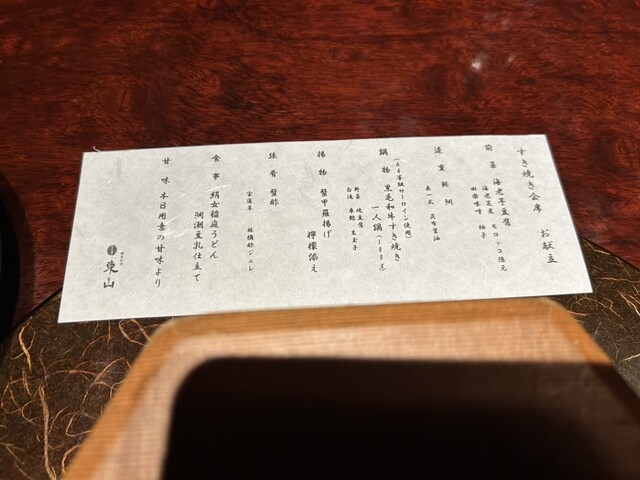 すき焼き会席 お献立
前菜 海老芋豆腐
海老芝煮 モロッコ隠元
田楽味噌 柚子
造里 鮪 鯛
あしらい 真一式 昆布醤油
鍋物 黒毛和牛すき焼き
(A5等級サーロイン使用)
一人鍋(100g)
野菜 焼豆腐
白滝 車麩 生玉子
揚物 蟹甲羅揚げ
檸檬添え
強肴 蟹酢
宝蓮草 林檎酢ジュレ
食事 絹女稲庭うどん
胡潮豆乳仕立て
甘味 本日用意の甘味より
東山